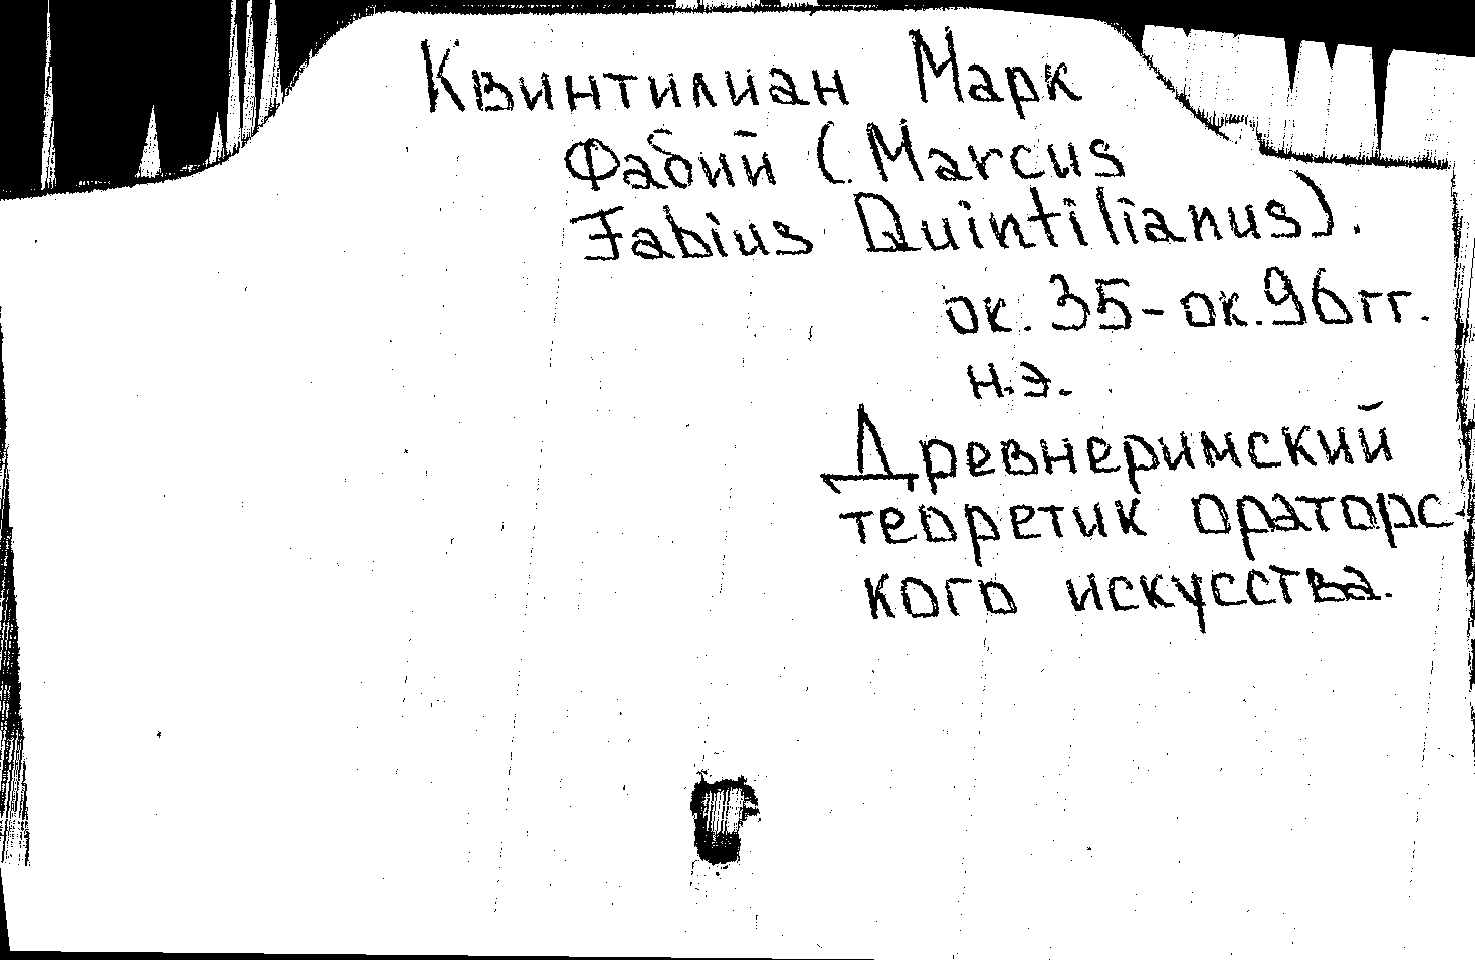 Квинтилиан Марк
Фабий (Marcus
Fabius Quintilianus).
ок. 35 - ок. 96 гг.
н.э.
Древнеримский
теоретик ораторс-
кого искусства.